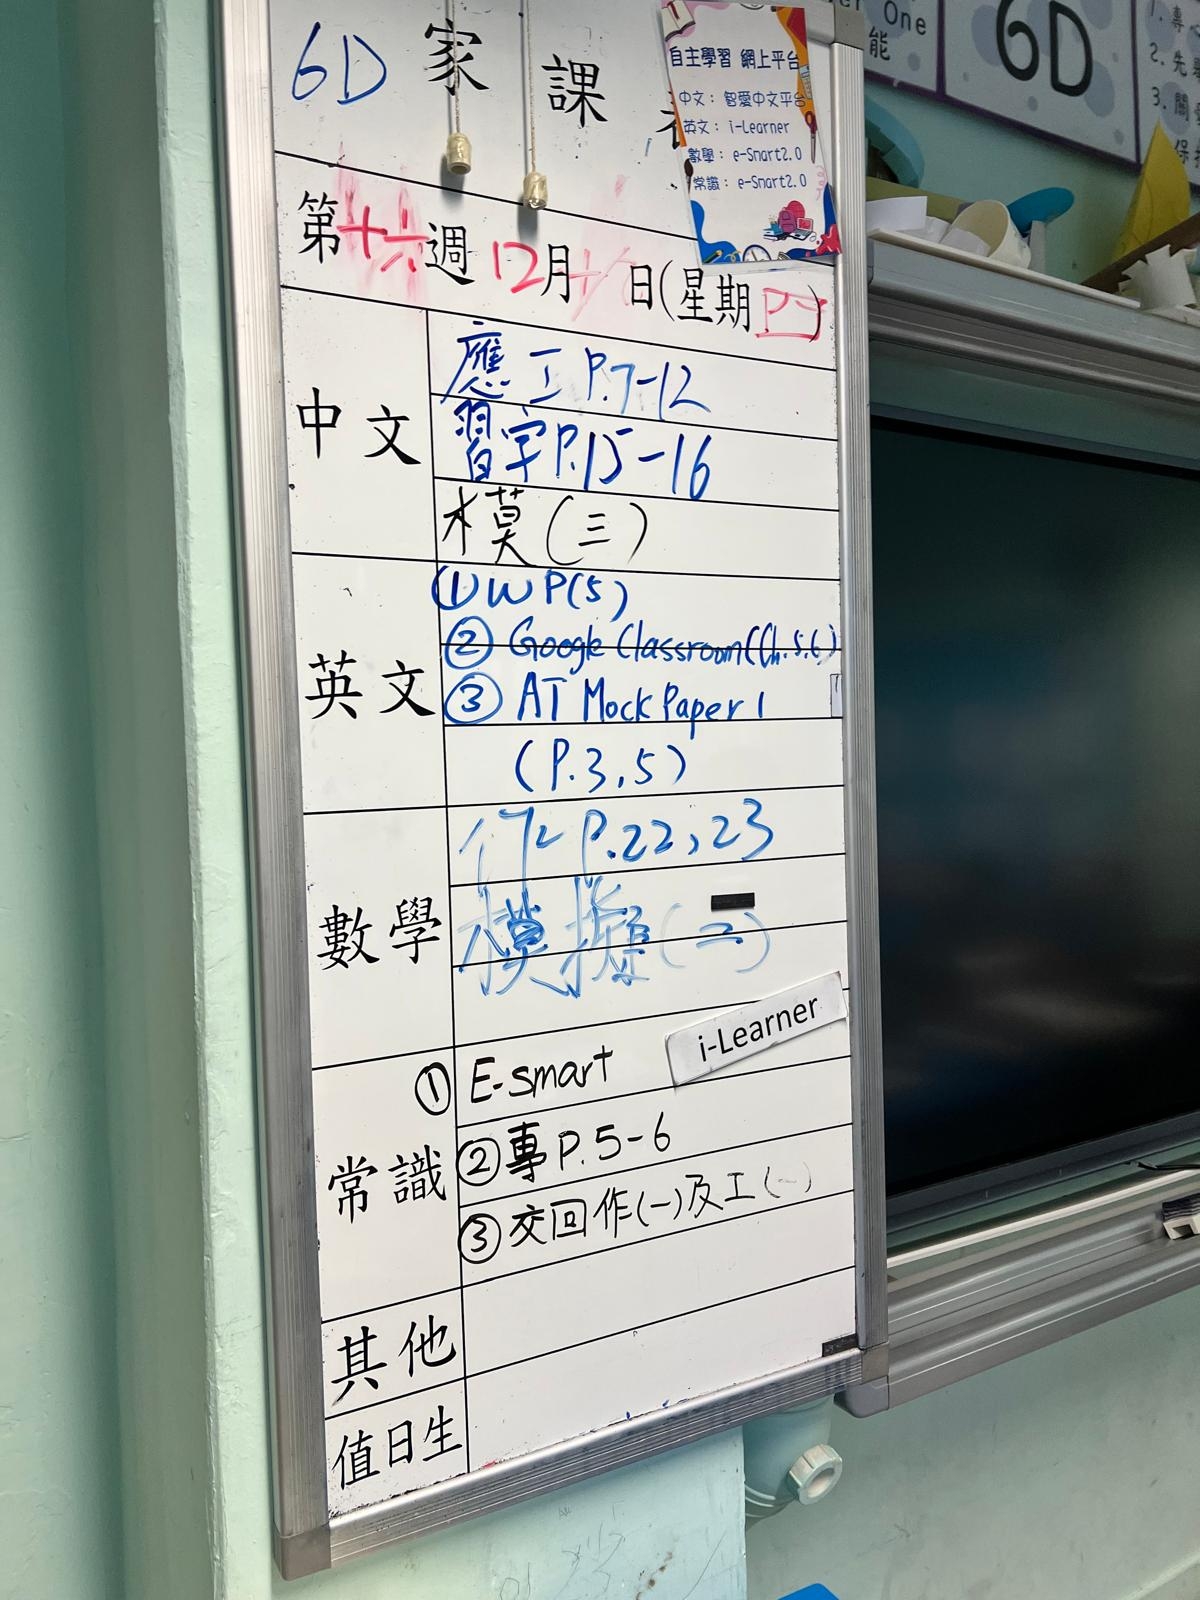 6D 家 課
自主學習 網上平台
中文： 智愛中文平台
英文： i-Learner
數學： e-Smart2.0
常識： e-Smart2.0
er One
能
6D
1. 專
2. 先
3. 關
保
第十六週 12月 日(星期四)
中文
應 工 P.7-12
習字P.15-16
模(三)
英文
① WP(5)
② Google Classroom(Ch.5,6)
③ AT Mock Paper 1
(P.3,5)
數學
作 P.22,23
模擬(二)
i-Learner
常識
① E-smart
② 專 P.5-6
③ 交回作(一)及工(一)
其他
值日生